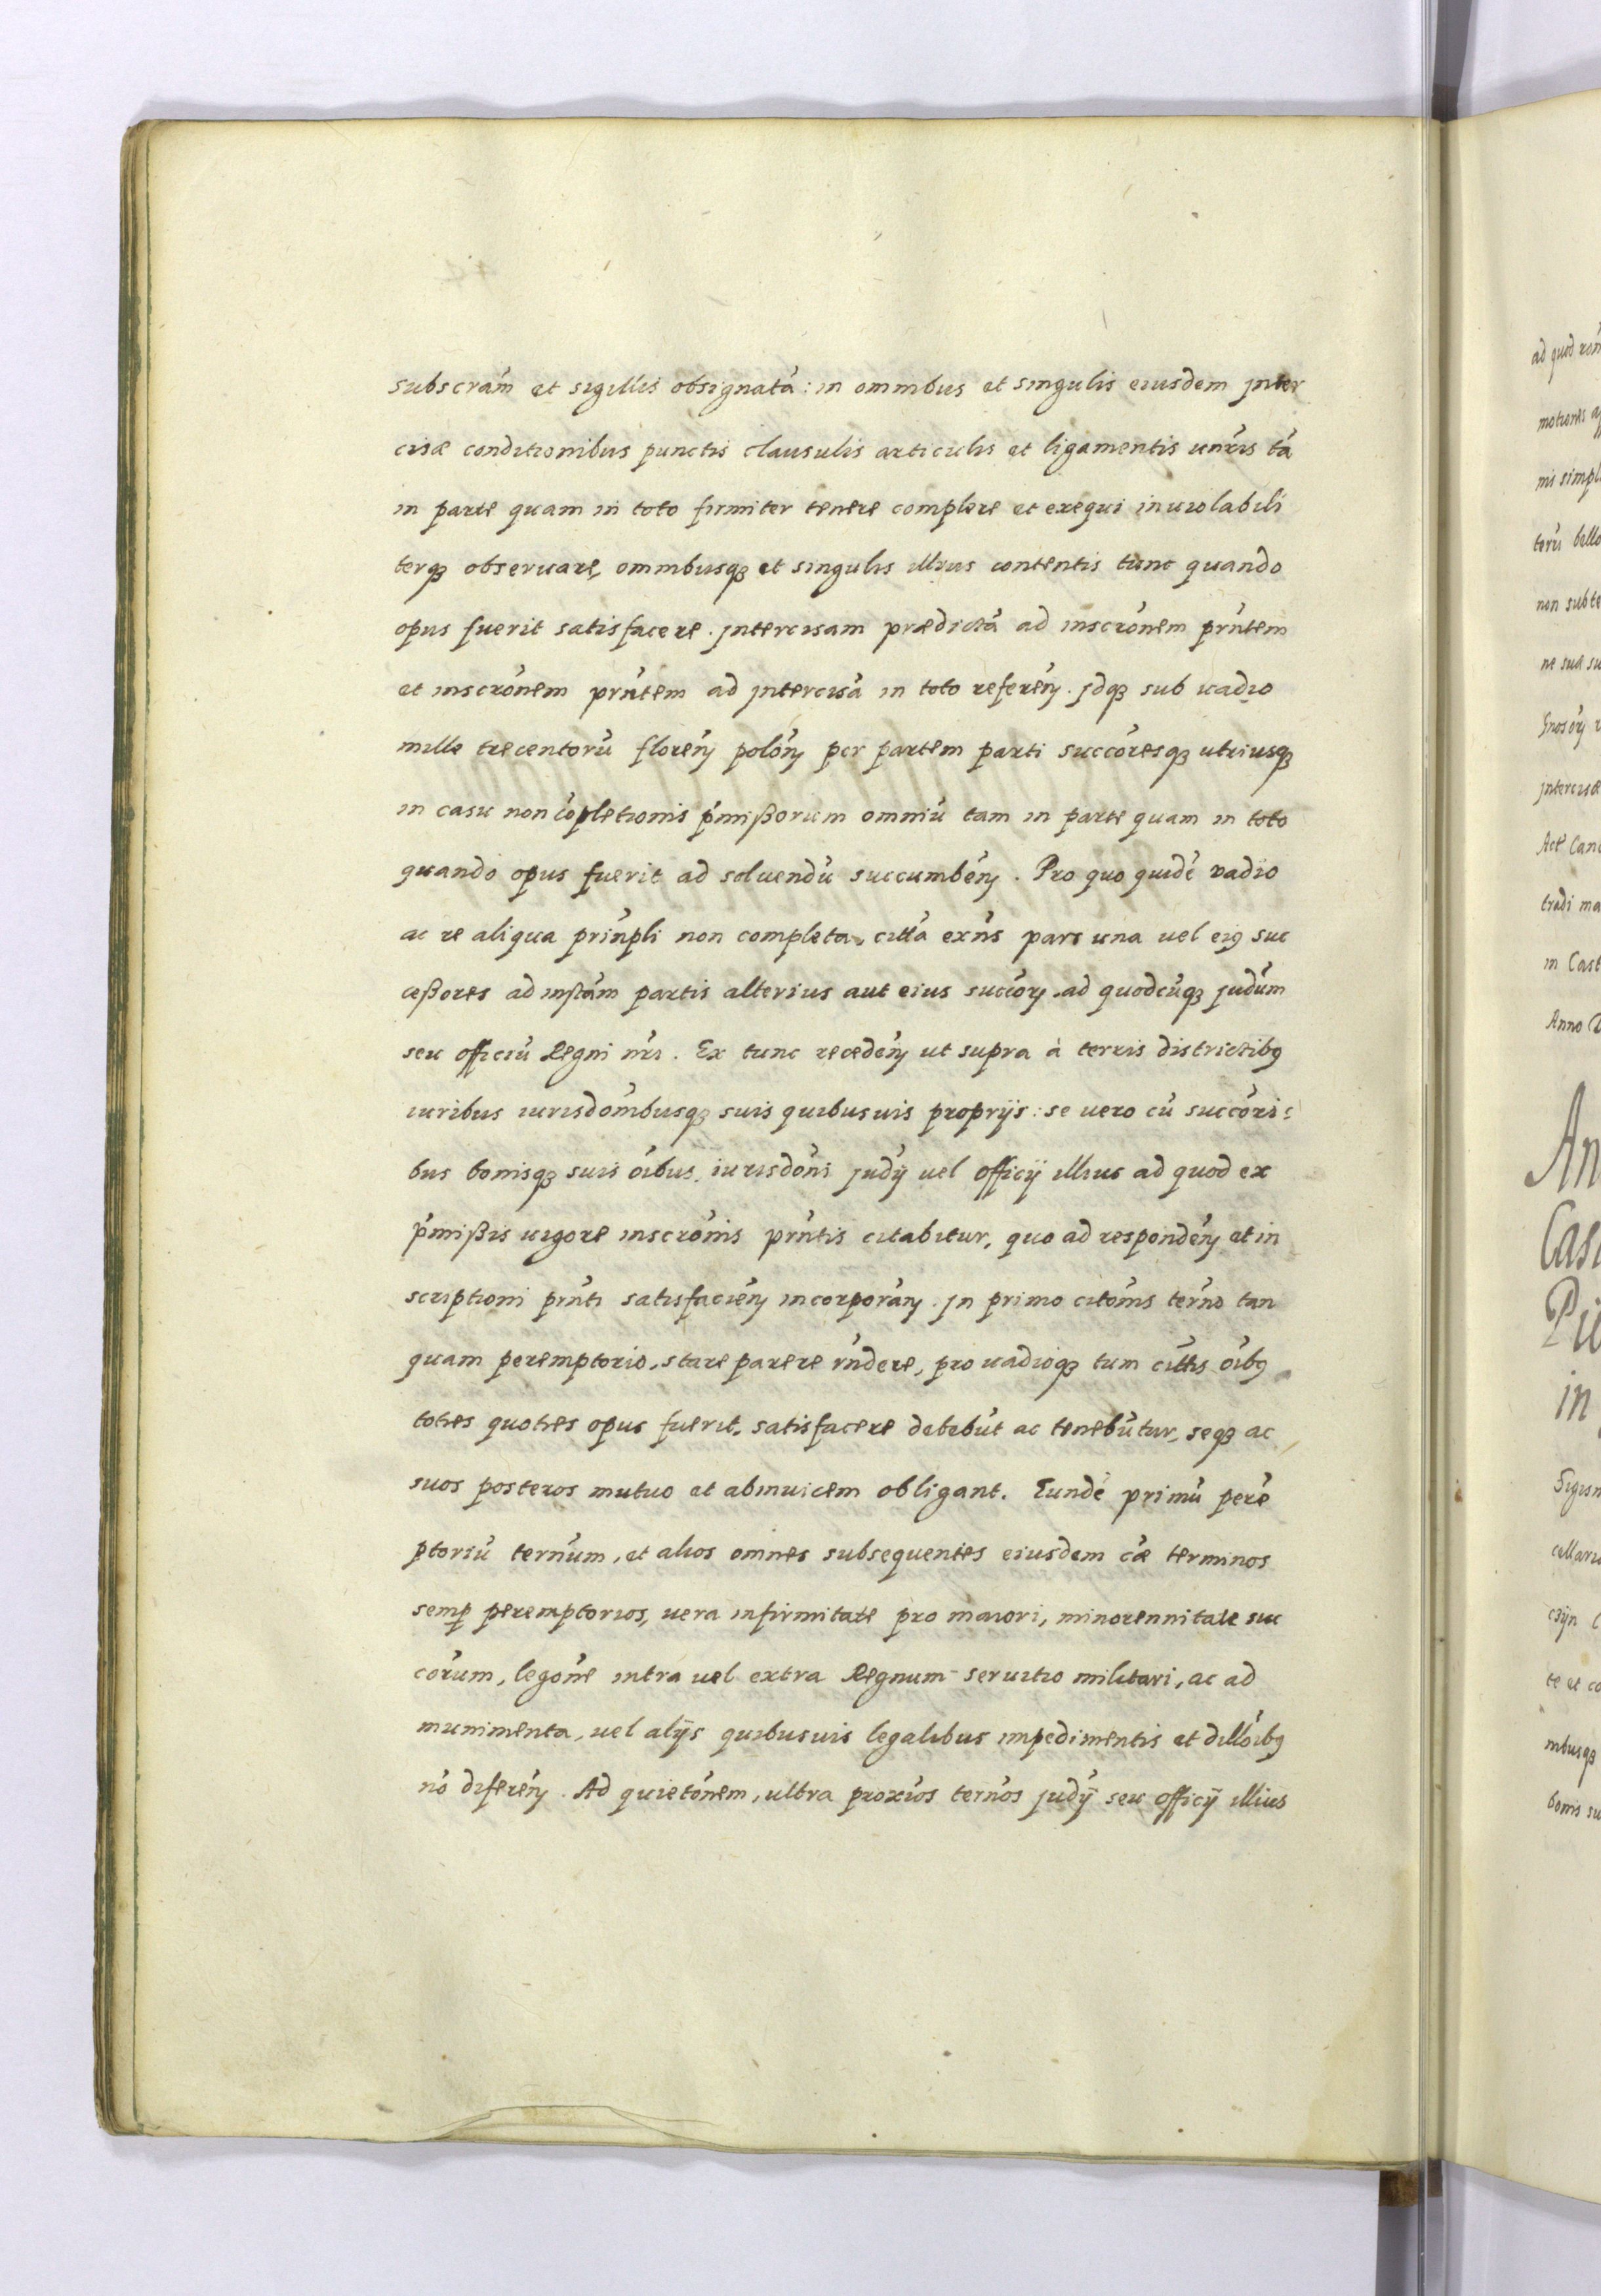 subscram̃ et sigillis obsignatã: in omnibus et singulis eiusdem jnter
cisæ conditionibus punctis clausulis articulis et ligamentis unr̃is tã
in parte quam in toto firmiter tenere complere et exequi inuiolabili
terqꝫ obseruare, omnibusqꝫ et singulis illius contentis tunc quando
opus fuerit satisfacere. jntercisam prædictã ad inscrõnem prñtem
et inscrõnem prñtem ad jntercisã in toto referẽn. jdqꝫ sub uadio
mille trecentorũ florẽn polõn per partem parti succõresqꝫ utriusqꝫ
in casu non cõpletionis p̃mißorum omniũ tam in parte quam in toto
quando opus fuerit ad soluendũ succumbẽn. Pro quo quidẽ vadio
ac re aliqua prinp̃li non completa, cittã exñs pars una uel eiꝰ suc
ceßores ad instãm partis alterius aut eius succõrỹ ad quodcũqꝫ judũm
seu officiũ Regni nr̃i. Ex tunc recedẽn ut supra à terris districtibꝰ
iuribus iurisdõmbusqꝫ suis quibusuis proprijs: se uero cũ succõri:
bus bonisqꝫ suis oĩbus, iurisdõni judỹ uel officij illius ad quod ex
p̃mißis uigore inscrõnis prñtis citabitur, quo ad respondẽn et in
scriptioni prñti satisfaciẽn incorporãn. jn primo citõnis terñо tan
quam peremptorio, stare parere rñdere, pro uadioqꝫ tum cittis oĩbꝰ
toties quoties opus fuerit, satisfacere debebũt ac tenebũtur, seqꝫ ac
suos posteros mutuo et abinuicem obligant. Eundẽ primũ perẽ
ptoriũ terñum, et alios omnes subsequentes eiusdem cãe terminos
semp̱ peremptorios, uera infirmitate pro maiori, minorennitate suc
cõrum, legõne intra uel extra Regnum seruitio militari, ac ad
munimenta, uel alijs quibusuis legalibus impedimentis et dillõibꝰ
nõ diferẽn. Ad quietõnem, ultra proxĩos terños judỹ seu officij illius
ad quod
motionis
mi simpl
terũ bello
non subte
ne suã su
jntercisæ
Act Can
tradi ma
in Cast
Anno
An
Cas
in
te et co
mbusqꝫ
bonis su